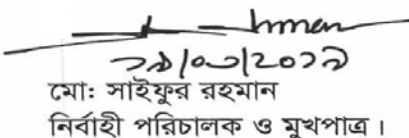 ২৯/০৩/২০২৯
মো: সাইফুর রহমান
নির্বাহী পরিচালক ও মুখপাত্র।